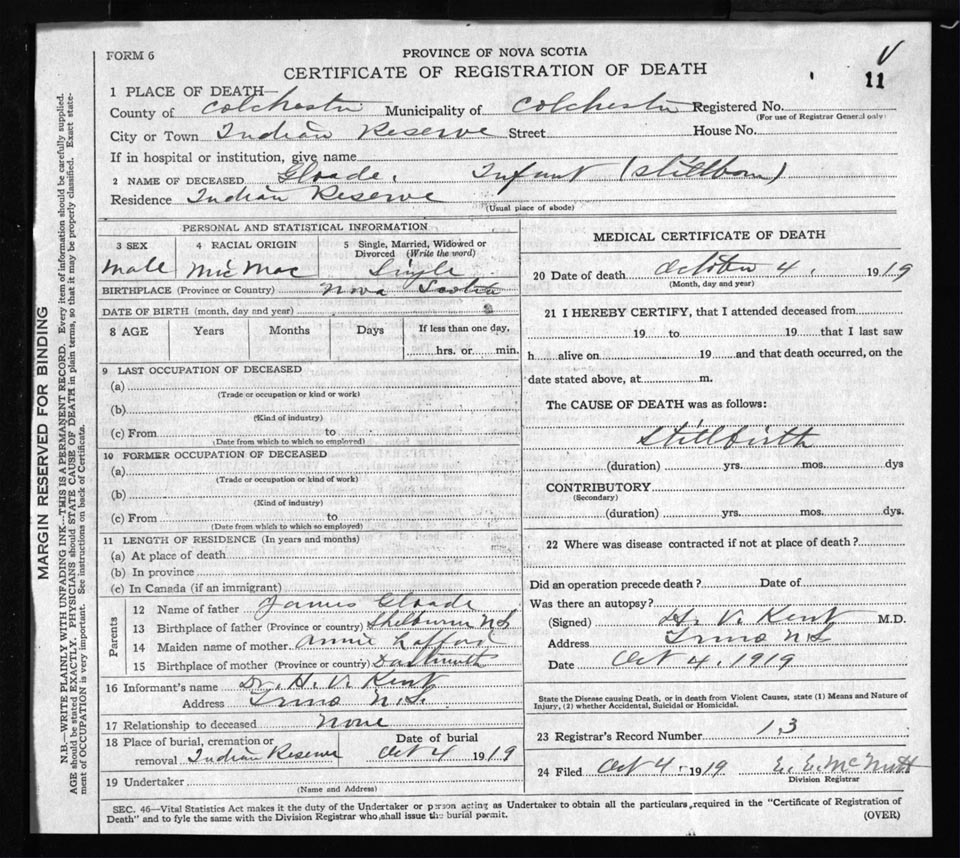 FORM 6
PROVINCE OF NOVA SCOTIA
CERTIFICATE OF REGISTRATION OF DEATH
11
1 PLACE OF DEATH—
County of Colchester Municipality of Colchester Registered No.
(For use of Registrar General only)
City or Town Indian Reserve Street House No.
If in hospital or institution, give name
2 NAME OF DECEASED Gloade, Infant (stillborn)
Residence Indian Reserve
(Usual place of abode)
PERSONAL AND STATISTICAL INFORMATION
3 SEX 4 RACIAL ORIGIN 5 Single, Married, Widowed or Divorced (Write the word)
Male Mic Mac Single
BIRTHPLACE (Province or Country) Nova Scotia
DATE OF BIRTH (month, day and year)
8 AGE Years Months Days If less than one day,
hrs. or min.
9 LAST OCCUPATION OF DECEASED
(a)
(Trade or occupation or kind or work)
(b)
(Kind of industry)
(c) From to
(Date from which to which so employed)
10 FORMER OCCUPATION OF DECEASED
(a)
(Trade or occupation or kind of work)
(b)
(Kind of industry)
(c) From to
(Date from which to which so employed)
11 LENGTH OF RESIDENCE (In years and months)
(a) At place of death
(b) In province
(c) In Canada (if an immigrant)
Parents
12 Name of father James Gloade
13 Birthplace of father (Province or country) Shelburne N.S.
14 Maiden name of mother Annie Lafford
15 Birthplace of mother (Province or country) Dartmouth
16 Informant's name Dr. H. V. Kent
Address Truro N.S.
17 Relationship to deceased None
18 Place of burial, cremation or removal Indian Reserve Date of burial Oct 4 1919
19 Undertaker
(Name and Address)
MEDICAL CERTIFICATE OF DEATH
20 Date of death October 4, 1919
(Month, day and year)
21 I HEREBY CERTIFY, that I attended deceased from
19 to 19 that I last saw
h alive on 19 and that death occurred, on the
date stated above, at m.
The CAUSE OF DEATH was as follows:
Stillbirth
(duration) yrs. mos. dys
CONTRIBUTORY
(Secondary)
(duration) yrs. mos. dys.
22 Where was disease contracted if not at place of death?
Did an operation precede death? Date of
Was there an autopsy?
(Signed) H. V. Kent M.D.
Address Truro N.S.
Date Oct 4, 1919
State the Disease causing Death, or in death from Violent Causes, state (1) Means and Nature of
Injury, (2) whether Accidental, Suicidal or Homicidal.
23 Registrar's Record Number 13
24 Filed Oct 4 1919 E. E. McNutt
Division Registrar
SEC. 46—Vital Statistics Act makes it the duty of the Undertaker or person acting as Undertaker to obtain all the particulars required in the "Certificate of Registration of
Death" and to fyle the same with the Division Registrar who shall issue the burial permit.
(OVER)
MARGIN RESERVED FOR BINDING
N.B.—WRITE PLAINLY WITH UNFADING INK—THIS IS A PERMANENT RECORD. Every item of information should be carefully supplied.
AGE should be stated EXACTLY. PHYSICIANS should STATE CAUSE OF DEATH in plain terms, so that it may be properly classified. Exact state-
ment of OCCUPATION is very important. See instructions on back of Certificate.